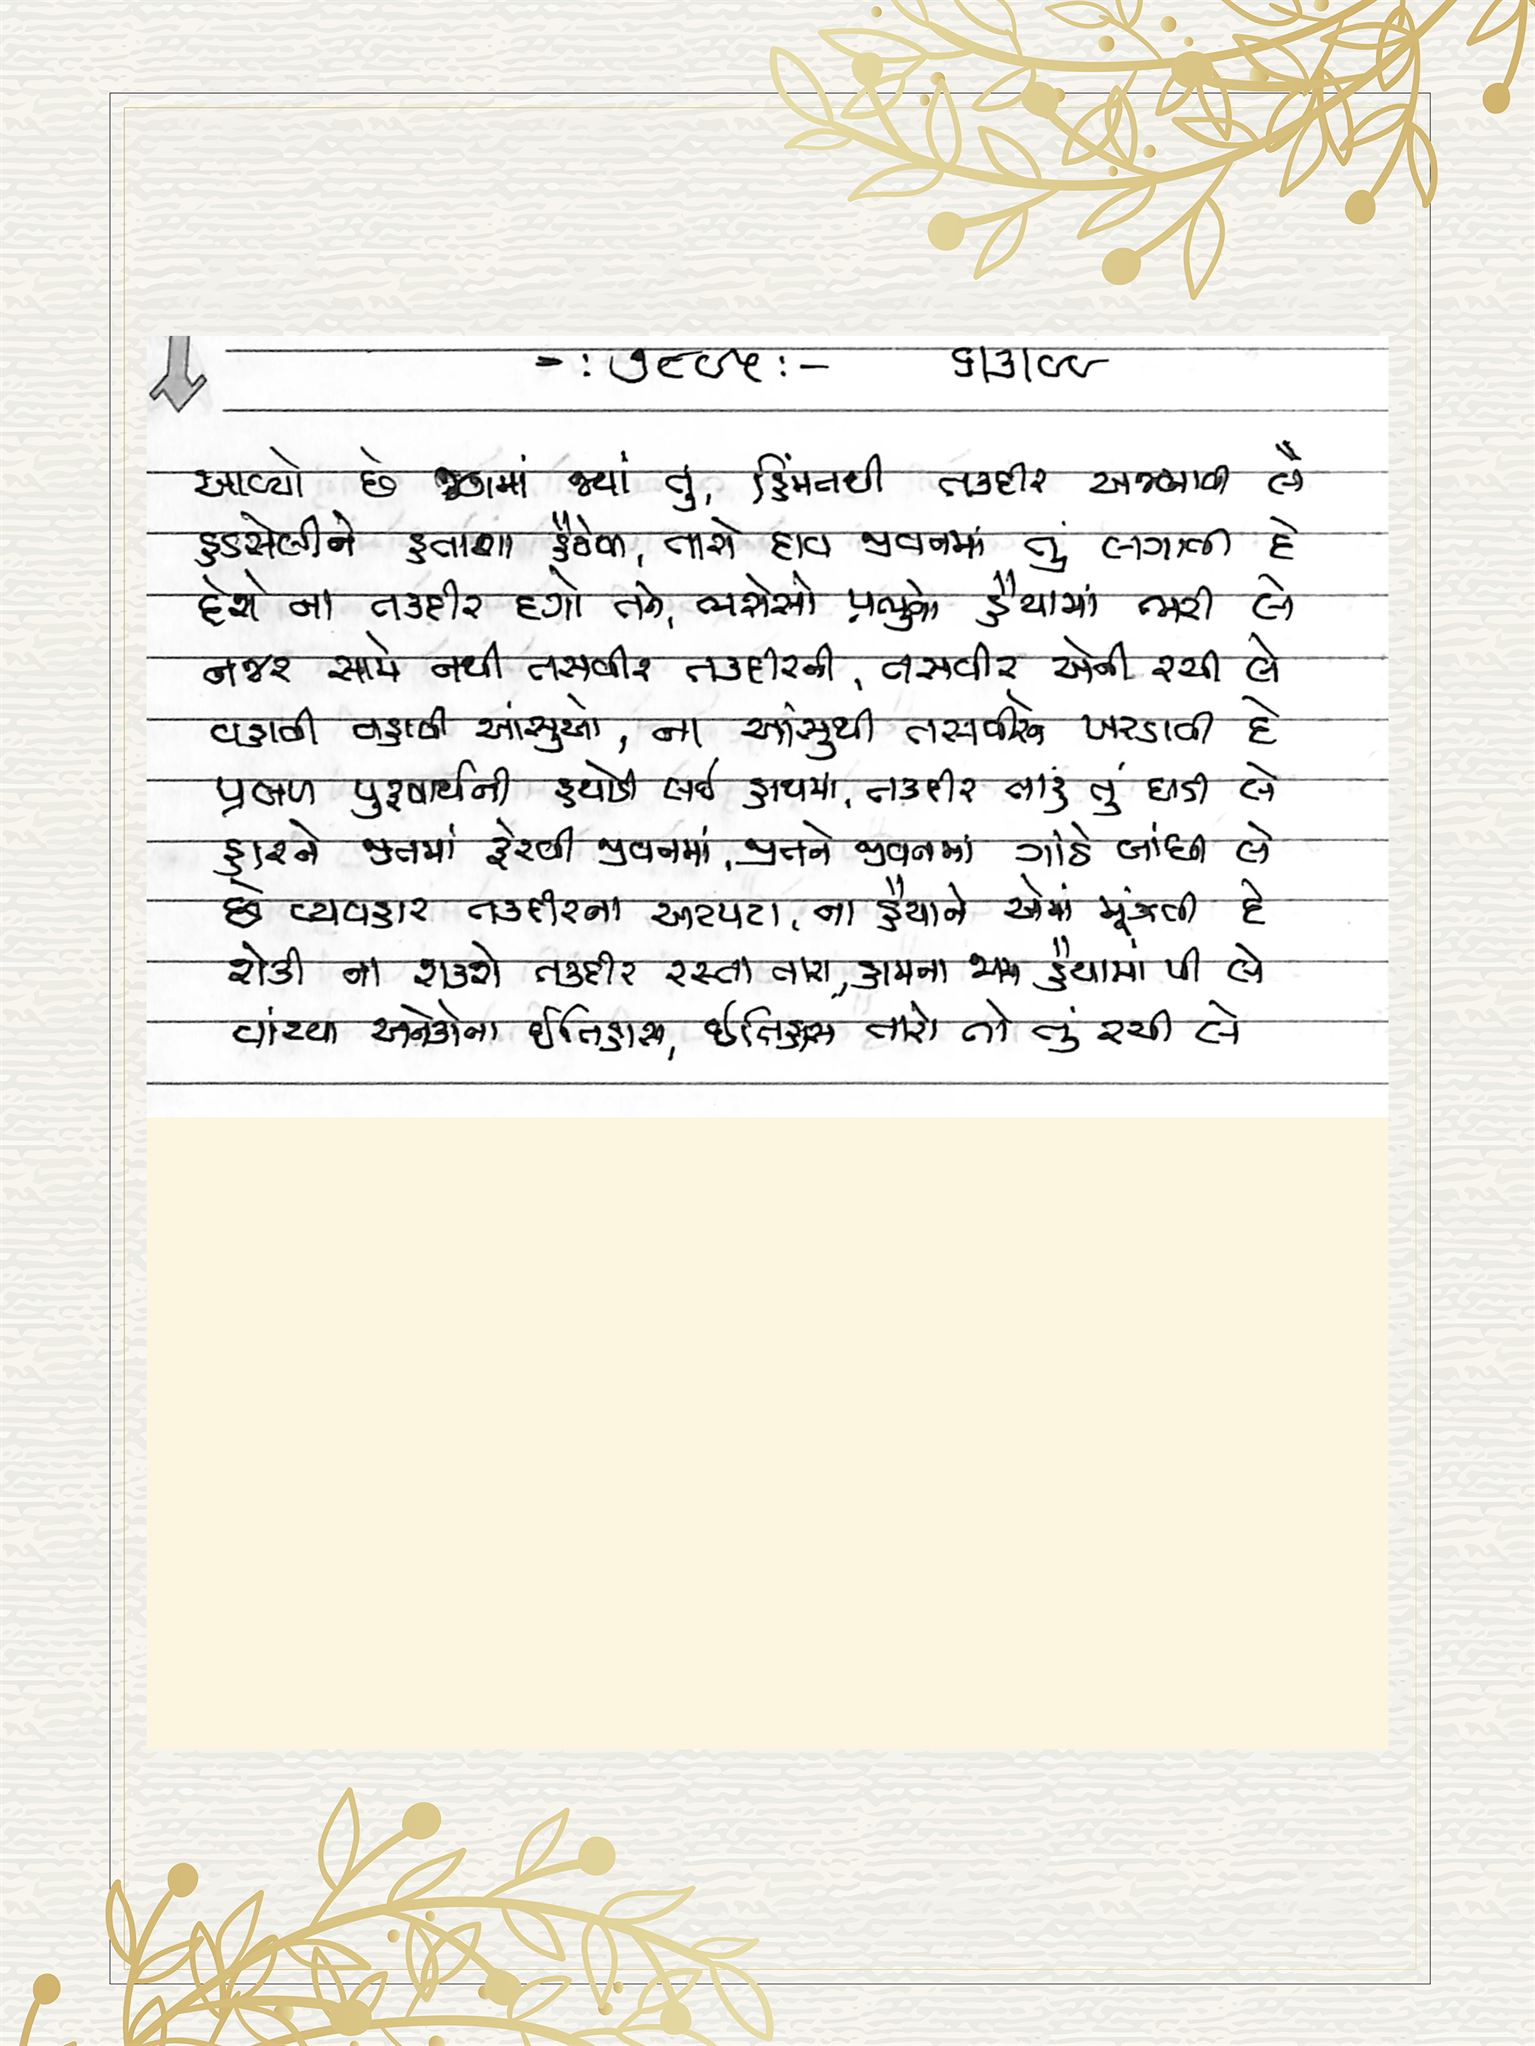 -: ૭૯૯૫ :- ૬/૩/૯૯
આવ્યો છે જગમાં જ્યાં તું, હિંમતથી તકદીર અજમાવી લે
હડસેલીને હતાશા હૈયેથી, તારો દાવ જીવનમાં તું લગાવી દે
દેશે ના તકદીર દગો તને, ભરોસો પ્રભુનો હૈયામાં ભરી લે
નજર સામે નથી તસવીર તકદીરની, તસવીર એની રચી લે
વહાવી વહાવી આંસુઓ, ના આંસુથી તસવીરને ખરડાવી દે
પ્રબળ પુરૂષાર્થની હથોડી લઈ હાથમાં, તકદીર તારું તું ઘડી લે
હારને જીતમાં ફેરવી જીવનમાં, જીતને જીવનમાં ગાંઠે બાંધી લે
છે વ્યવહાર તકદીરના અટપટા, ના હૈયાને એમાં મૂંઝવી દે
રોકી ના શકશે તકદીર રસ્તા તારા, હામના જામ હૈયામાં પી લે
વાંચ્યા અનેકોના ઈતિહાસ, ઈતિહાસ તારો તો તું રચી લે